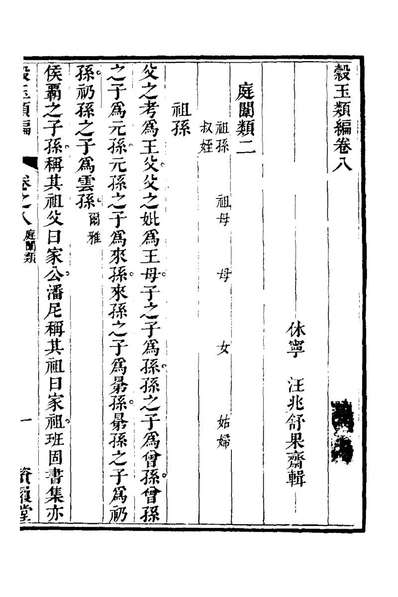 穀玉類編卷八
休寧 汪兆舒果齋輯
庭闈類二
祖孫 祖母 母 女 姑婦
叔姪
祖孫
父之考為王父父之妣為王母子之子為孫孫之子為曾孫曾孫
之子為元孫元孫之子為來孫來孫之子為晜孫晜孫之子為礽
孫礽孫之子為雲孫爾雅
侯霸之子孫稱其祖父曰家公潘尼稱其祖曰家祖班固書集亦
穀玉類編 卷之八庭闈類 一